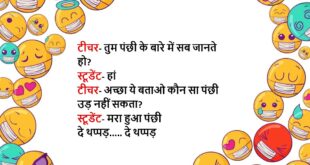 टीचर- तुम पंछी के बारे में सब जानते
हो?
स्टूडेंट- हां
टीचर- अच्छा ये बताओ कौन सा पंछी
उड़ नहीं सकता?
स्टूडेंट- मरा हुआ पंछी
दे थप्पड़..... दे थप्पड़